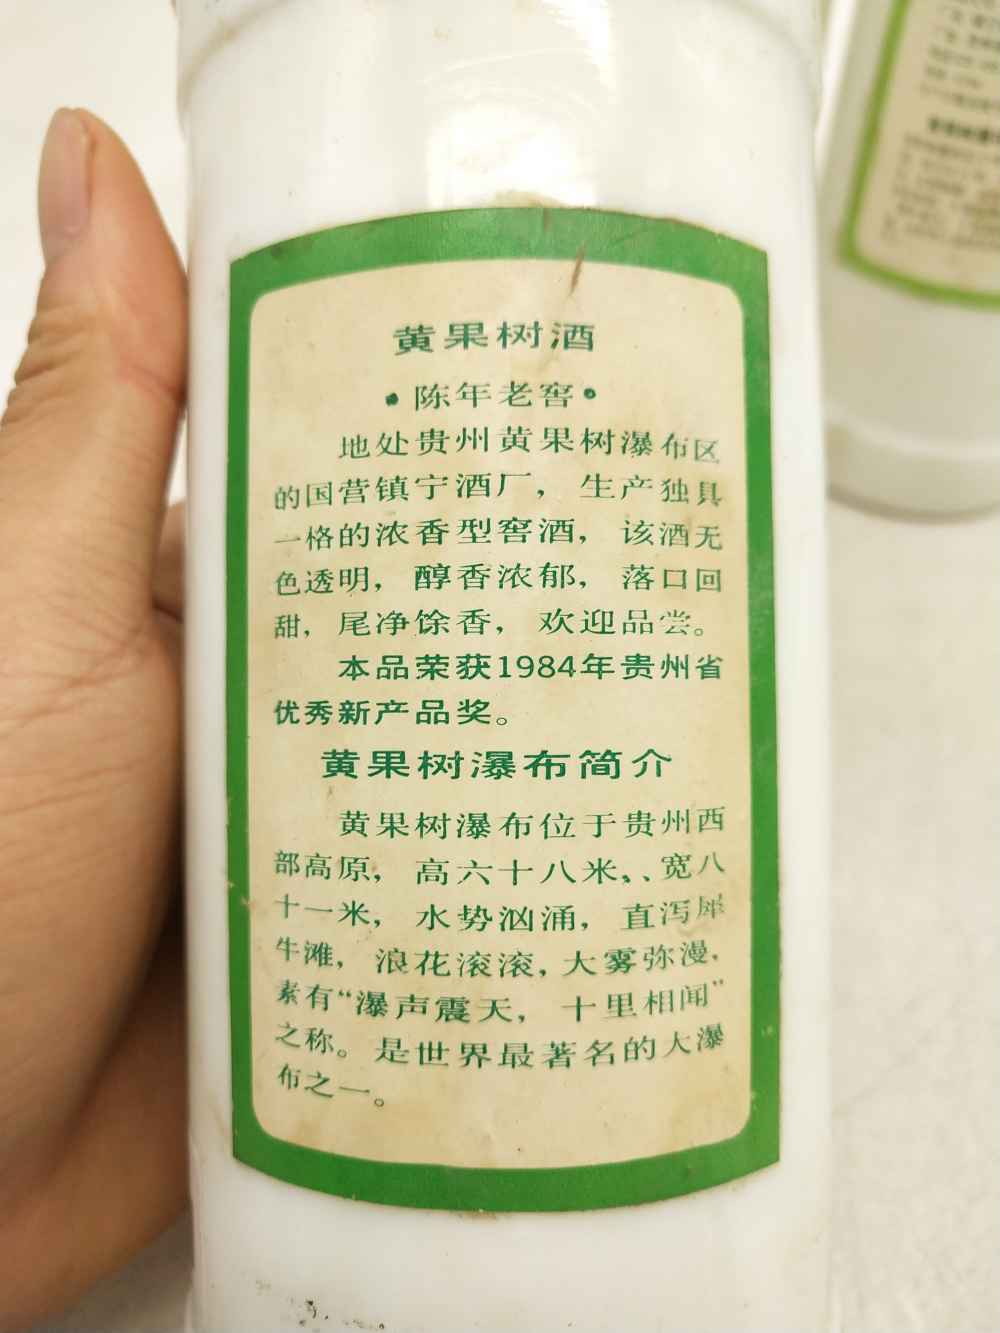 黄果树酒
•陈年老窖•
地处贵州黄果树瀑布区
的国营镇宁酒厂，生产独具
一格的浓香型窖酒，该酒无
色透明，醇香浓郁，落口回
甜，尾净馀香，欢迎品尝。
本品荣获1984年贵州省
优秀新产品奖。
黄果树瀑布简介
黄果树瀑布位于贵州西
部高原，高六十八米、、宽八
十一米，水势汹涌，直泻犀
牛滩，浪花滚滚，大雾弥漫，
素有“瀑声震天，十里相闻”
之称。是世界最著名的大瀑
布之一。